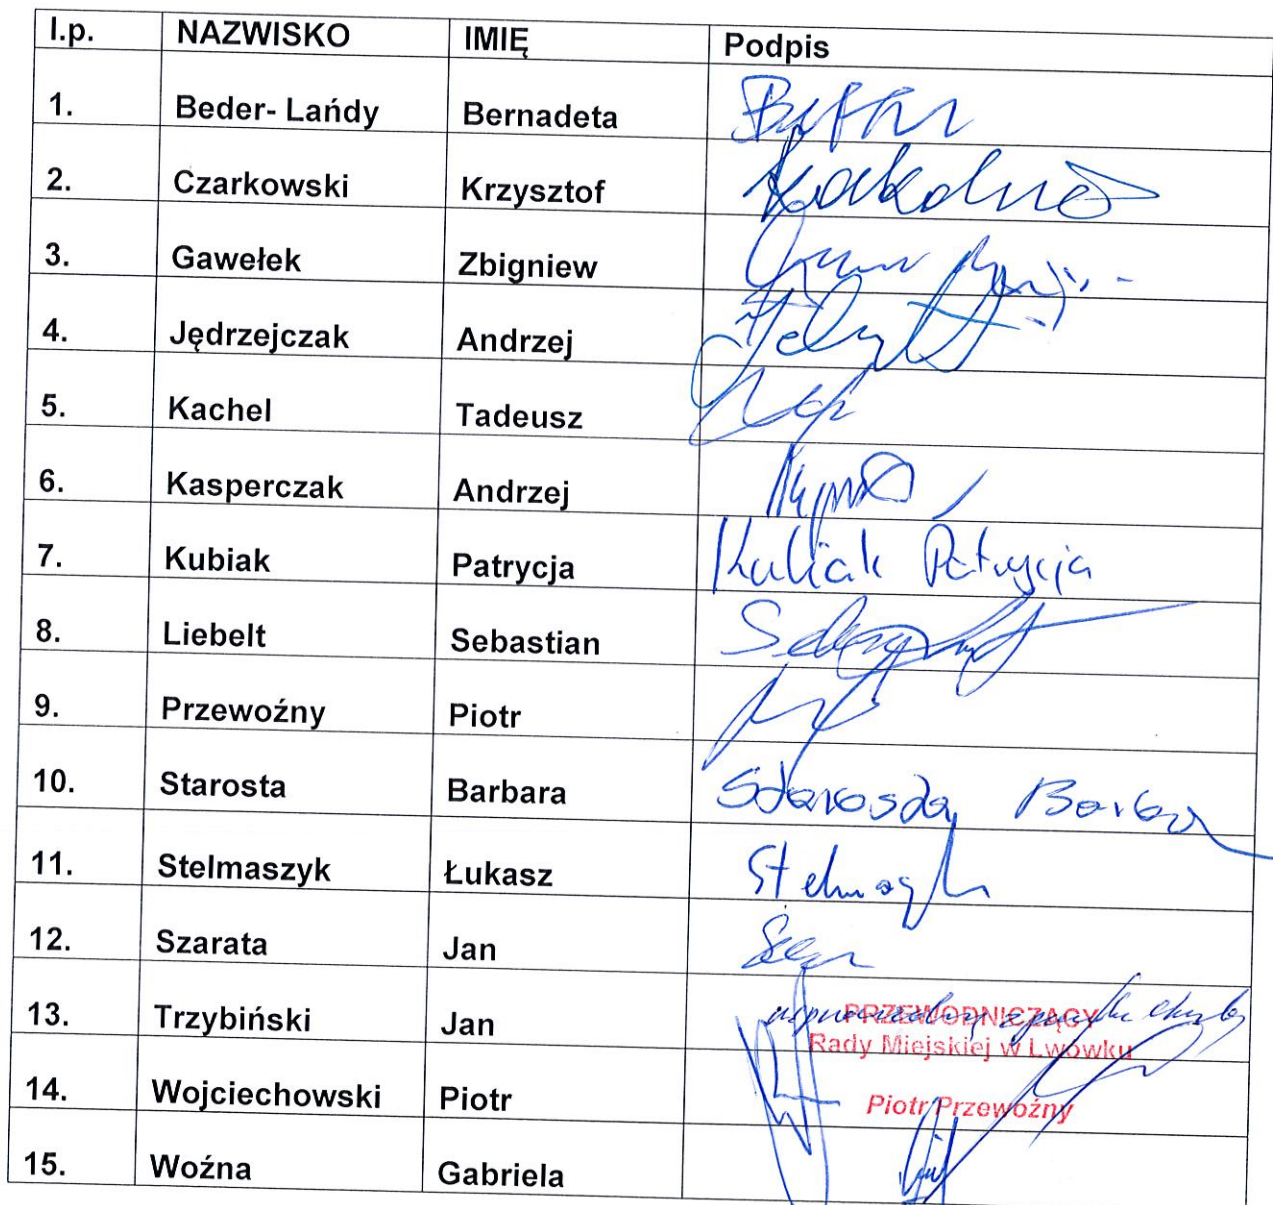 l.p. NAZWISKO IMIĘ Podpis
1. Beder- Lańdy Bernadeta
2. Czarkowski Krzysztof
3. Gawełek Zbigniew
4. Jędrzejczak Andrzej
5. Kachel Tadeusz
6. Kasperczak Andrzej
7. Kubiak Patrycja Kubiak Patrycja
8. Liebelt Sebastian
9. Przewoźny Piotr
10. Starosta Barbara Starosta Barbara
11. Stelmaszyk Łukasz
12. Szarata Jan
13. Trzybiński Jan
PRZEWODNICZĄCY
Rady Miejskiej w Lwówku
14. Wojciechowski Piotr
Piotr Przewoźny
15. Woźna Gabriela